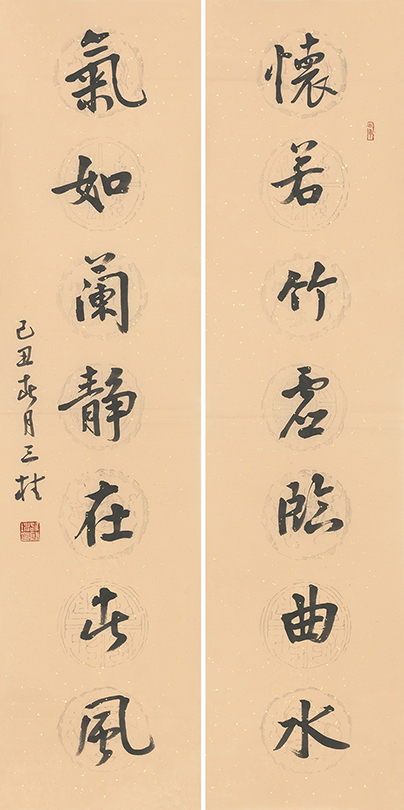 懷若竹虚臨曲水
氣如蘭静在春風
己丑春月三